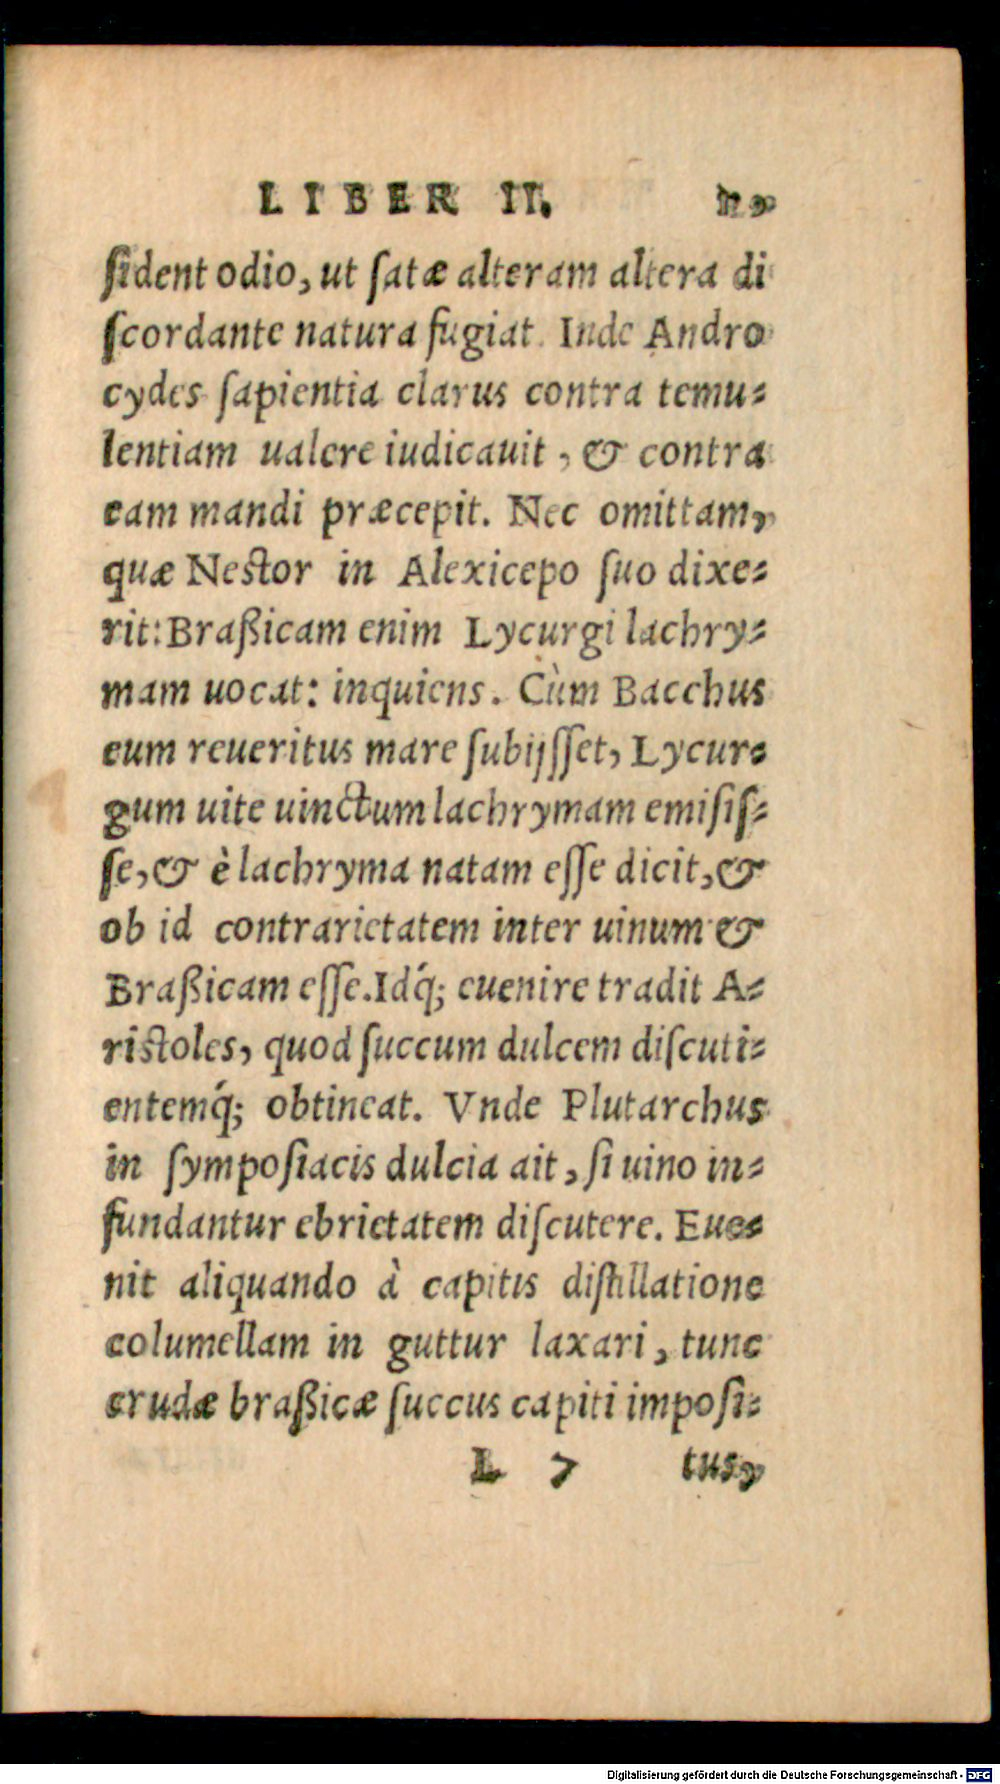 LIBER II.
sident odio, ut satæ alteram altera di
scordante natura fugiat. Inde Andro
cydes sapientia clarus contra temu-
lentiam ualere iudicauit, & contra
eam mandi præcepit. Nec omittam,
quæ Nestor in Alexicepo suo dixe-
rit: Braßicam enim Lycurgi lachry-
mam uocat: inquiens. Cùm Bacchus
eum reueritus mare subijsset, Lycur-
gum uite uinctum lachrymam emisis-
se, & è lachryma natam esse dicit, &
ob id contrarietatem inter uinum &
Braßicam esse. Idq́; euenire tradit A-
ristoles, quod succum dulcem discuti-
entemq́; obtineat. Vnde Plutarchus
in symposiacis dulcia ait, si uino in-
fundantur ebrietatem discutere. Eue-
nit aliquando à capitis distillatione
columellam in guttur laxari, tunc
crudæ braßicæ succus capiti imposi-
L 7 tus,
Digitalisierung gefördert durch die Deutsche Forschungsgemeinschaft - DFG